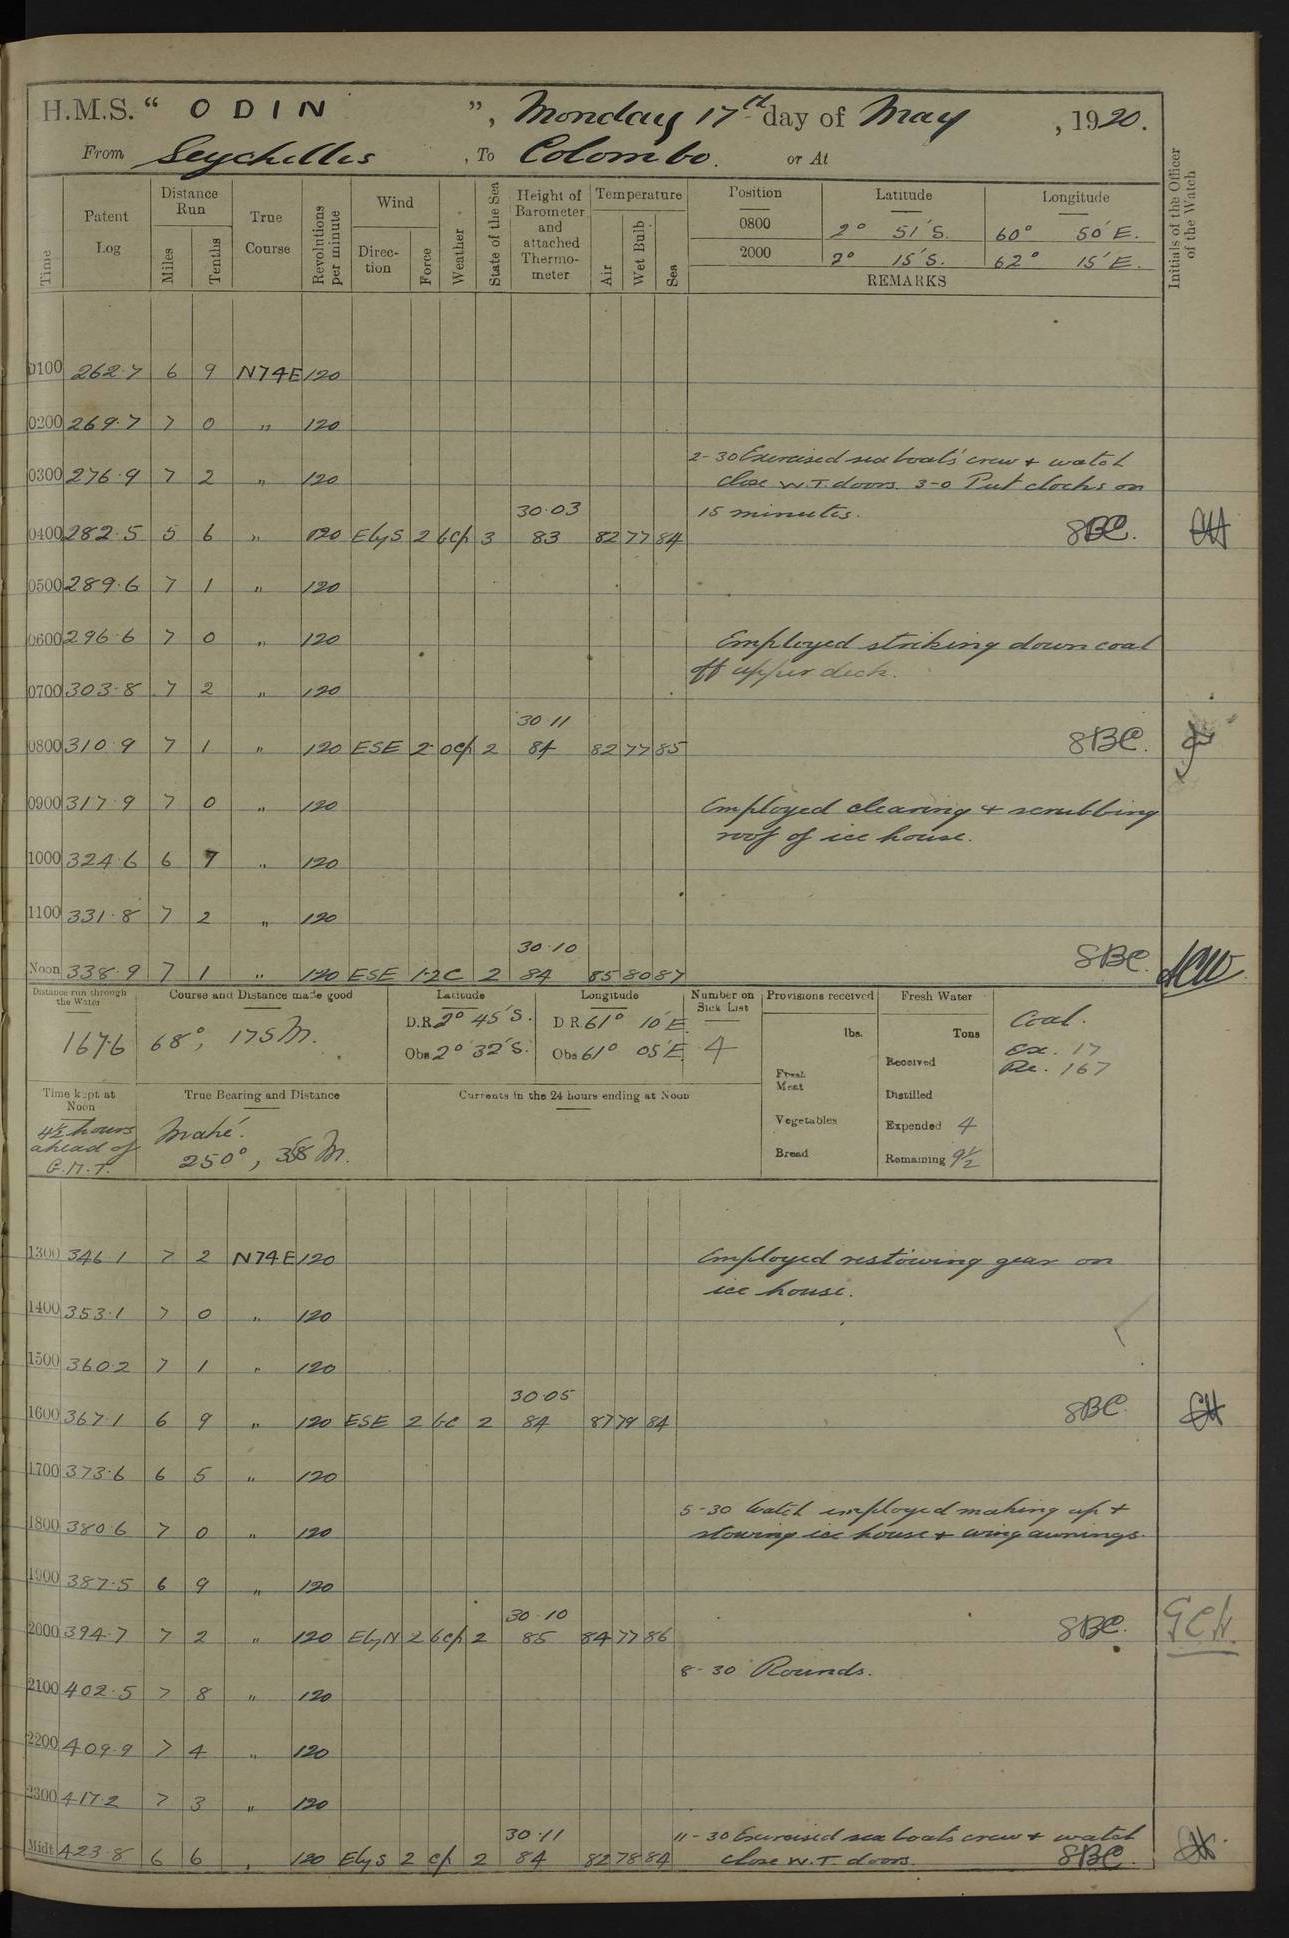 H.M.S. “ ODIN ”, Monday 17th day of May , 1920.
From Seychelles , To Colombo. or At
Time
Patent Log
Distance Run
Miles
Tenths
True Course
Revolutions per minute
Wind
Direction
Force
Weather
State of the Sea
Height of Barometer and attached Thermometer
Temperature
Air
Wet Bulb
Sea
Position Latitude Longitude
0800 2° 51´S. 60° 50´E.
2000 2° 15´S. 62° 15´E.
REMARKS
Initials of the Officer of the Watch
0100 262.7 6 9 N74E 120
0200 269.7 7 0 " 120
2-30 Exercised sea boats' crew & watch
0300 276.9 7 2 " 120
close W.T. doors. 3-0 Put clocks on
15 minutes.
30.03
0400 282.5 5 6 " 120 EbyS 2 bcp 3 83 82 77 84 8BC.
0500 289.6 7 1 " 120
0600 296.6 7 0 " 120
Employed striking down coal
off upper deck.
0700 303.8 7 2 " 120
30.11
0800 310.9 7 1 " 120 ESE 2 ocp 2 84 82 77 85 8BC.
0900 317.9 7 0 " 120
Employed clearing & scrubbing
roof of ice house.
1000 324.6 6 7 " 120
1100 331.8 7 2 " 120
30.10
Noon 338.9 7 1 " 120 ESE 1.2 C 2 84 85 80 87 8BC.
Distance run through the Water
167.6
Course and Distance made good
68°, 175 M.
Latitude
D.R. 2° 45´S.
Obs 2° 32´S.
Longitude
D R. 61° 10´E.
Obs 61° 05´E.
Number on Sick List
4
Provisions received
lbs.
Fresh Meat
Vegetables
Bread
Fresh Water
Tons
Received
Distilled
Expended 4
Remaining 9½
Coal.
Ex. 17
Re. 167
Time kept at Noon
4½ hours
ahead of
G.M.T.
True Bearing and Distance
Mahé.
250°, 358 M.
Currents in the 24 hours ending at Noon
1300 346.1 7 2 N74E 120
Employed restowing gear on
ice house.
1400 353.1 7 0 " 120
1500 360.2 7 1 " 120
30.05
1600 367.1 6 9 " 120 ESE 2 bc 2 84 87 79 84 8BC.
1700 373.6 6 5 " 120
5-30 Watch employed making up &
1800 380.6 7 0 " 120
stowing ice house & wing awnings.
1900 387.5 6 9 " 120
30.10
2000 394.7 7 2 " 120 EbyN 2 bcp 2 85 84 77 86 8BC.
8-30 Rounds.
2100 402.5 7 8 " 120
2200 409.9 7 4 " 120
2300 417.2 7 3 " 120
30.11
11-30 Exercised sea boats crew & watch
Midt 423.8 6 6 " 120 EbyS 2 cp 2 84 82 78 84 close W.T. doors. 8BC.